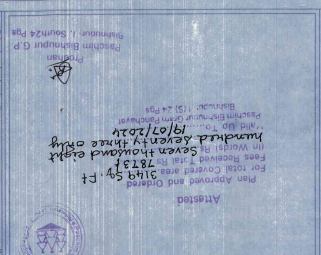 Attested
Plan Approved and Ordered
for total Covered area. 3149 Sq. Ft
Fees Received Total Rs 7873/
(In Words) Rs Seven thousand eight
hundred seventy three only
Valid Up To 19/07/2024
Paschim Bishnupur Gram Panchayat
Bishnupur 1 (S) 24 Pgs
Prodhan
Paschim Bishnupur G.P
Bishnupur. I, South24 Pgs